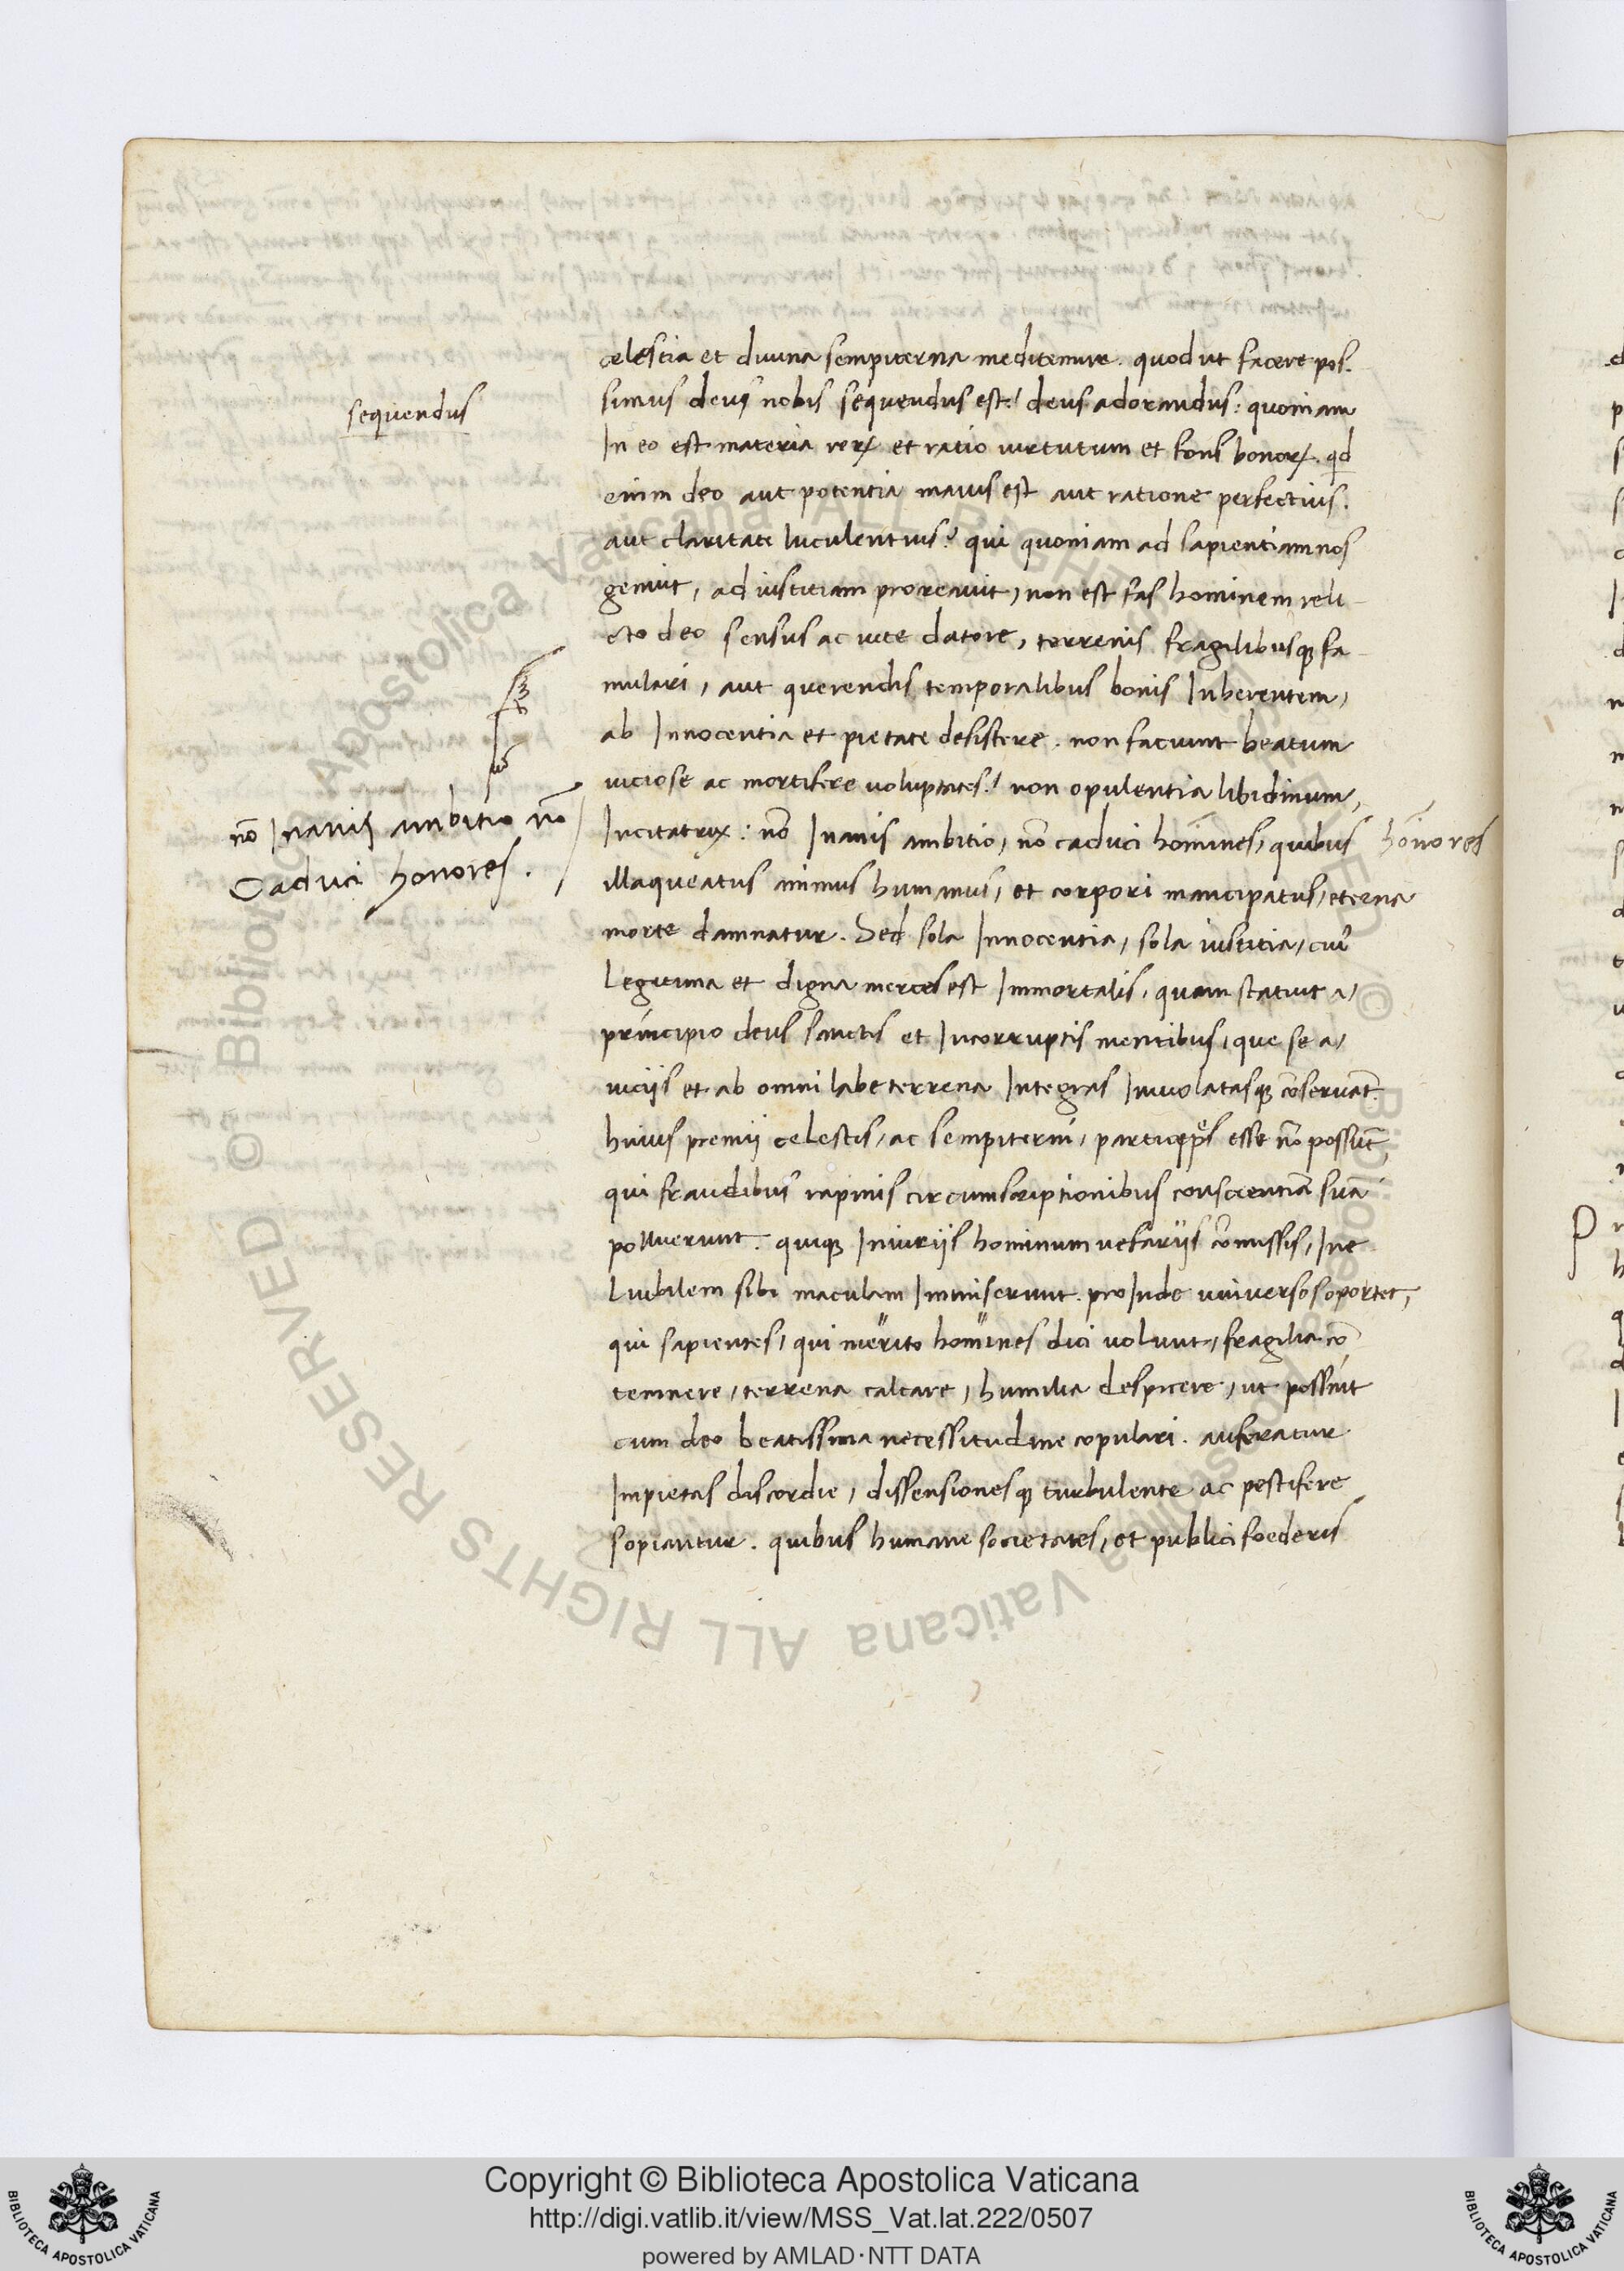 celestia et divina sempiterna meditemur. quod ut facere pos-
simus deus nobis sequendus est! deus adorandus: quoniam
sequendus
In eo est materia reꝝ et ratio virtutum et fons bonoꝝ. qd
enim deo aut potentia maius est aut ratione perfectius.
aut claritate luculentius? qui quoniam ad sapientiam nos
genuit, ad iustitiam procreavit, non est fas hominem reli-
cto deo sensus ac vite datore, terrenis fragilibusqꝫ fa-
mulari, aut querendis temporalibus bonis Inherentem,
ab Innocentia et pietate desistere. non faciunt beatum
viciose ac mortifere voluptates! non opulentia libidinum,
Incitatrix: nõ Inanis ambitio, nõ caduci homines, quibus
honores
nõ Inanis ambitio nõ
Caduci honores.
illaqueatus animus humanus, et corpori mancipatus, eterna
morte damnatur. Sed sola Innocentia, sola iustitia, cui
Legitima et digna merces est Immortalis, quam statuit a,
principio deus sanctis et Incorruptis mentibus, que se a,
viciis et ab omni labe terrena Integras Inviolatasqꝫ cõservãt.
huius premij celestis, ac sempiterni, participes esse nõ possũt,
qui fraudibus rapinis circumscriptionibus conscientiã suã
polluerunt. quiqꝫ Iniuriis hominum nefariis cõmissis, Ine
Luibilem sibi maculam Immiserunt. proInde universos oportet,
qui sapientes, qui merito homines dici volunt, fragilia cõ
temnere, terrena calcare, humilia despicere, ut possint
cum deo beatissima necessitudine copulari. auferatur
Impietas discordie, dissensionesqꝫ turbulente ac pestifere
sopiantur. quibus humane societates, et publici foederis
Copyright © Biblioteca Apostolica Vaticana
http://digi.vatlib.it/view/MSS_Vat.lat.222/0507
powered by AMLAD·NTT DATA
BIBLIOTECA APOSTOLICA VATICANA
BIBLIOTECA APOSTOLICA VATICANA
© Biblioteca Apostolica Vaticana ALL RIGHTS RESERVED
© Biblioteca Apostolica Vaticana ALL RIGHTS RESERVED